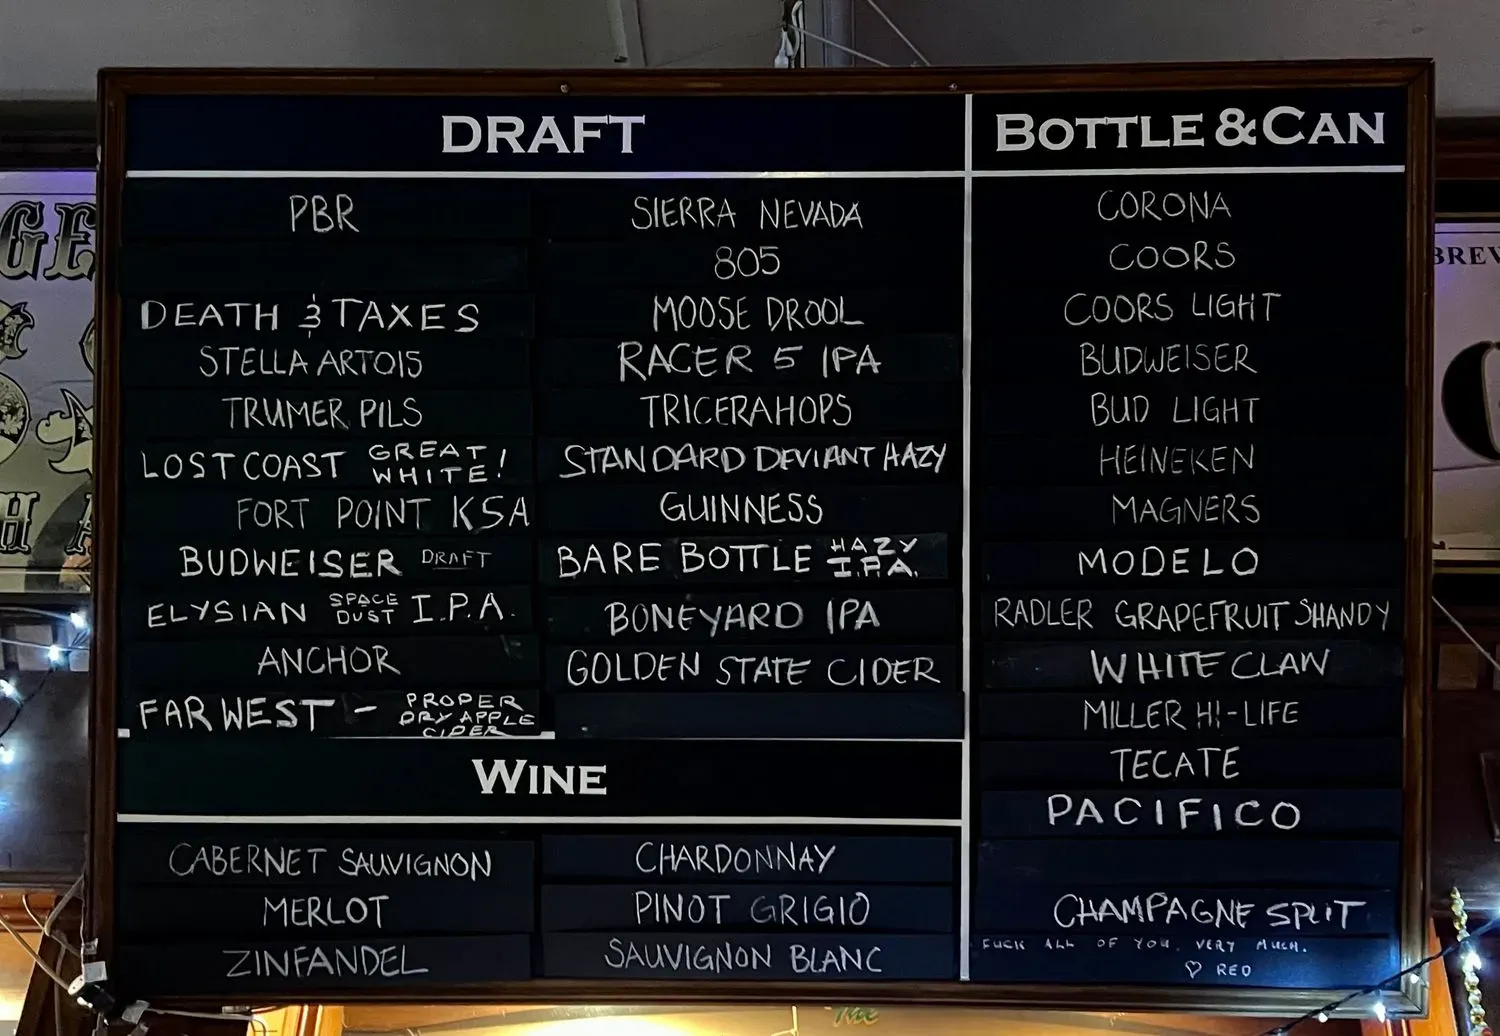 DRAFT
PBR
DEATH & TAXES
STELLA ARTOIS
TRUMER PILS
LOST COAST GREAT WHITE!
FORT POINT KSA
BUDWEISER DRAFT
ELYSIAN SPACE DUST I.P.A.
ANCHOR
FAR WEST - PROPER DRY APPLE CIDER
SIERRA NEVADA
805
MOOSE DROOL
RACER 5 IPA
TRICERAHOPS
STANDARD DEVIANT HAZY
GUINNESS
BARE BOTTLE HAZY I.P.A.
BONEYARD IPA
GOLDEN STATE CIDER
WINE
CABERNET SAUVIGNON
MERLOT
ZINFANDEL
CHARDONNAY
PINOT GRIGIO
SAUVIGNON BLANC
BOTTLE & CAN
CORONA
COORS
COORS LIGHT
BUDWEISER
BUD LIGHT
HEINEKEN
MAGNERS
MODELO
RADLER GRAPEFRUIT SHANDY
WHITE CLAW
MILLER HI-LIFE
TECATE
PACIFICO
CHAMPAGNE SPLIT
FUCK ALL OF YOU. VERY MUCH.
♡ RED
BREW
The